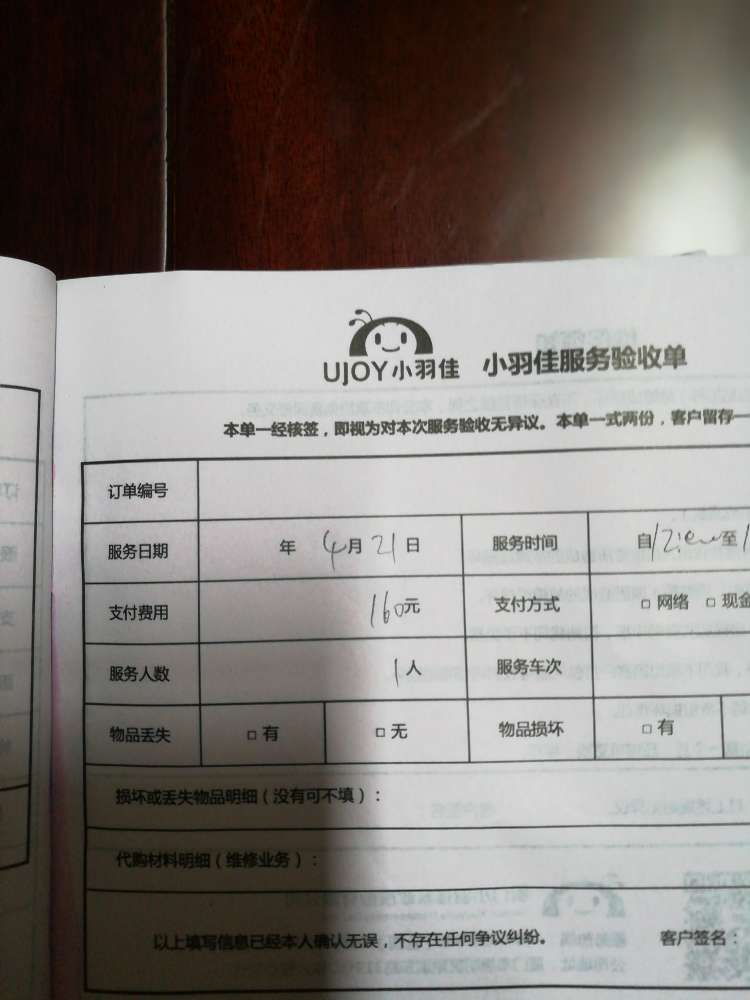 UJOY小羽佳 小羽佳服务验收单
本单一经核签，即视为对本次服务验收无异议。本单一式两份，客户留存一
订单编号
服务日期 年 4月21日 服务时间 自 至
支付费用 160元 支付方式 □ 网络 □ 现金
服务人数 1人 服务车次
物品丢失 □ 有 □ 无 物品损坏 □ 有
损坏或丢失物品明细（没有可不填）：
代购材料明细（维修业务）：
以上填写信息已经本人确认无误，不存在任何争议纠纷。 客户签名：